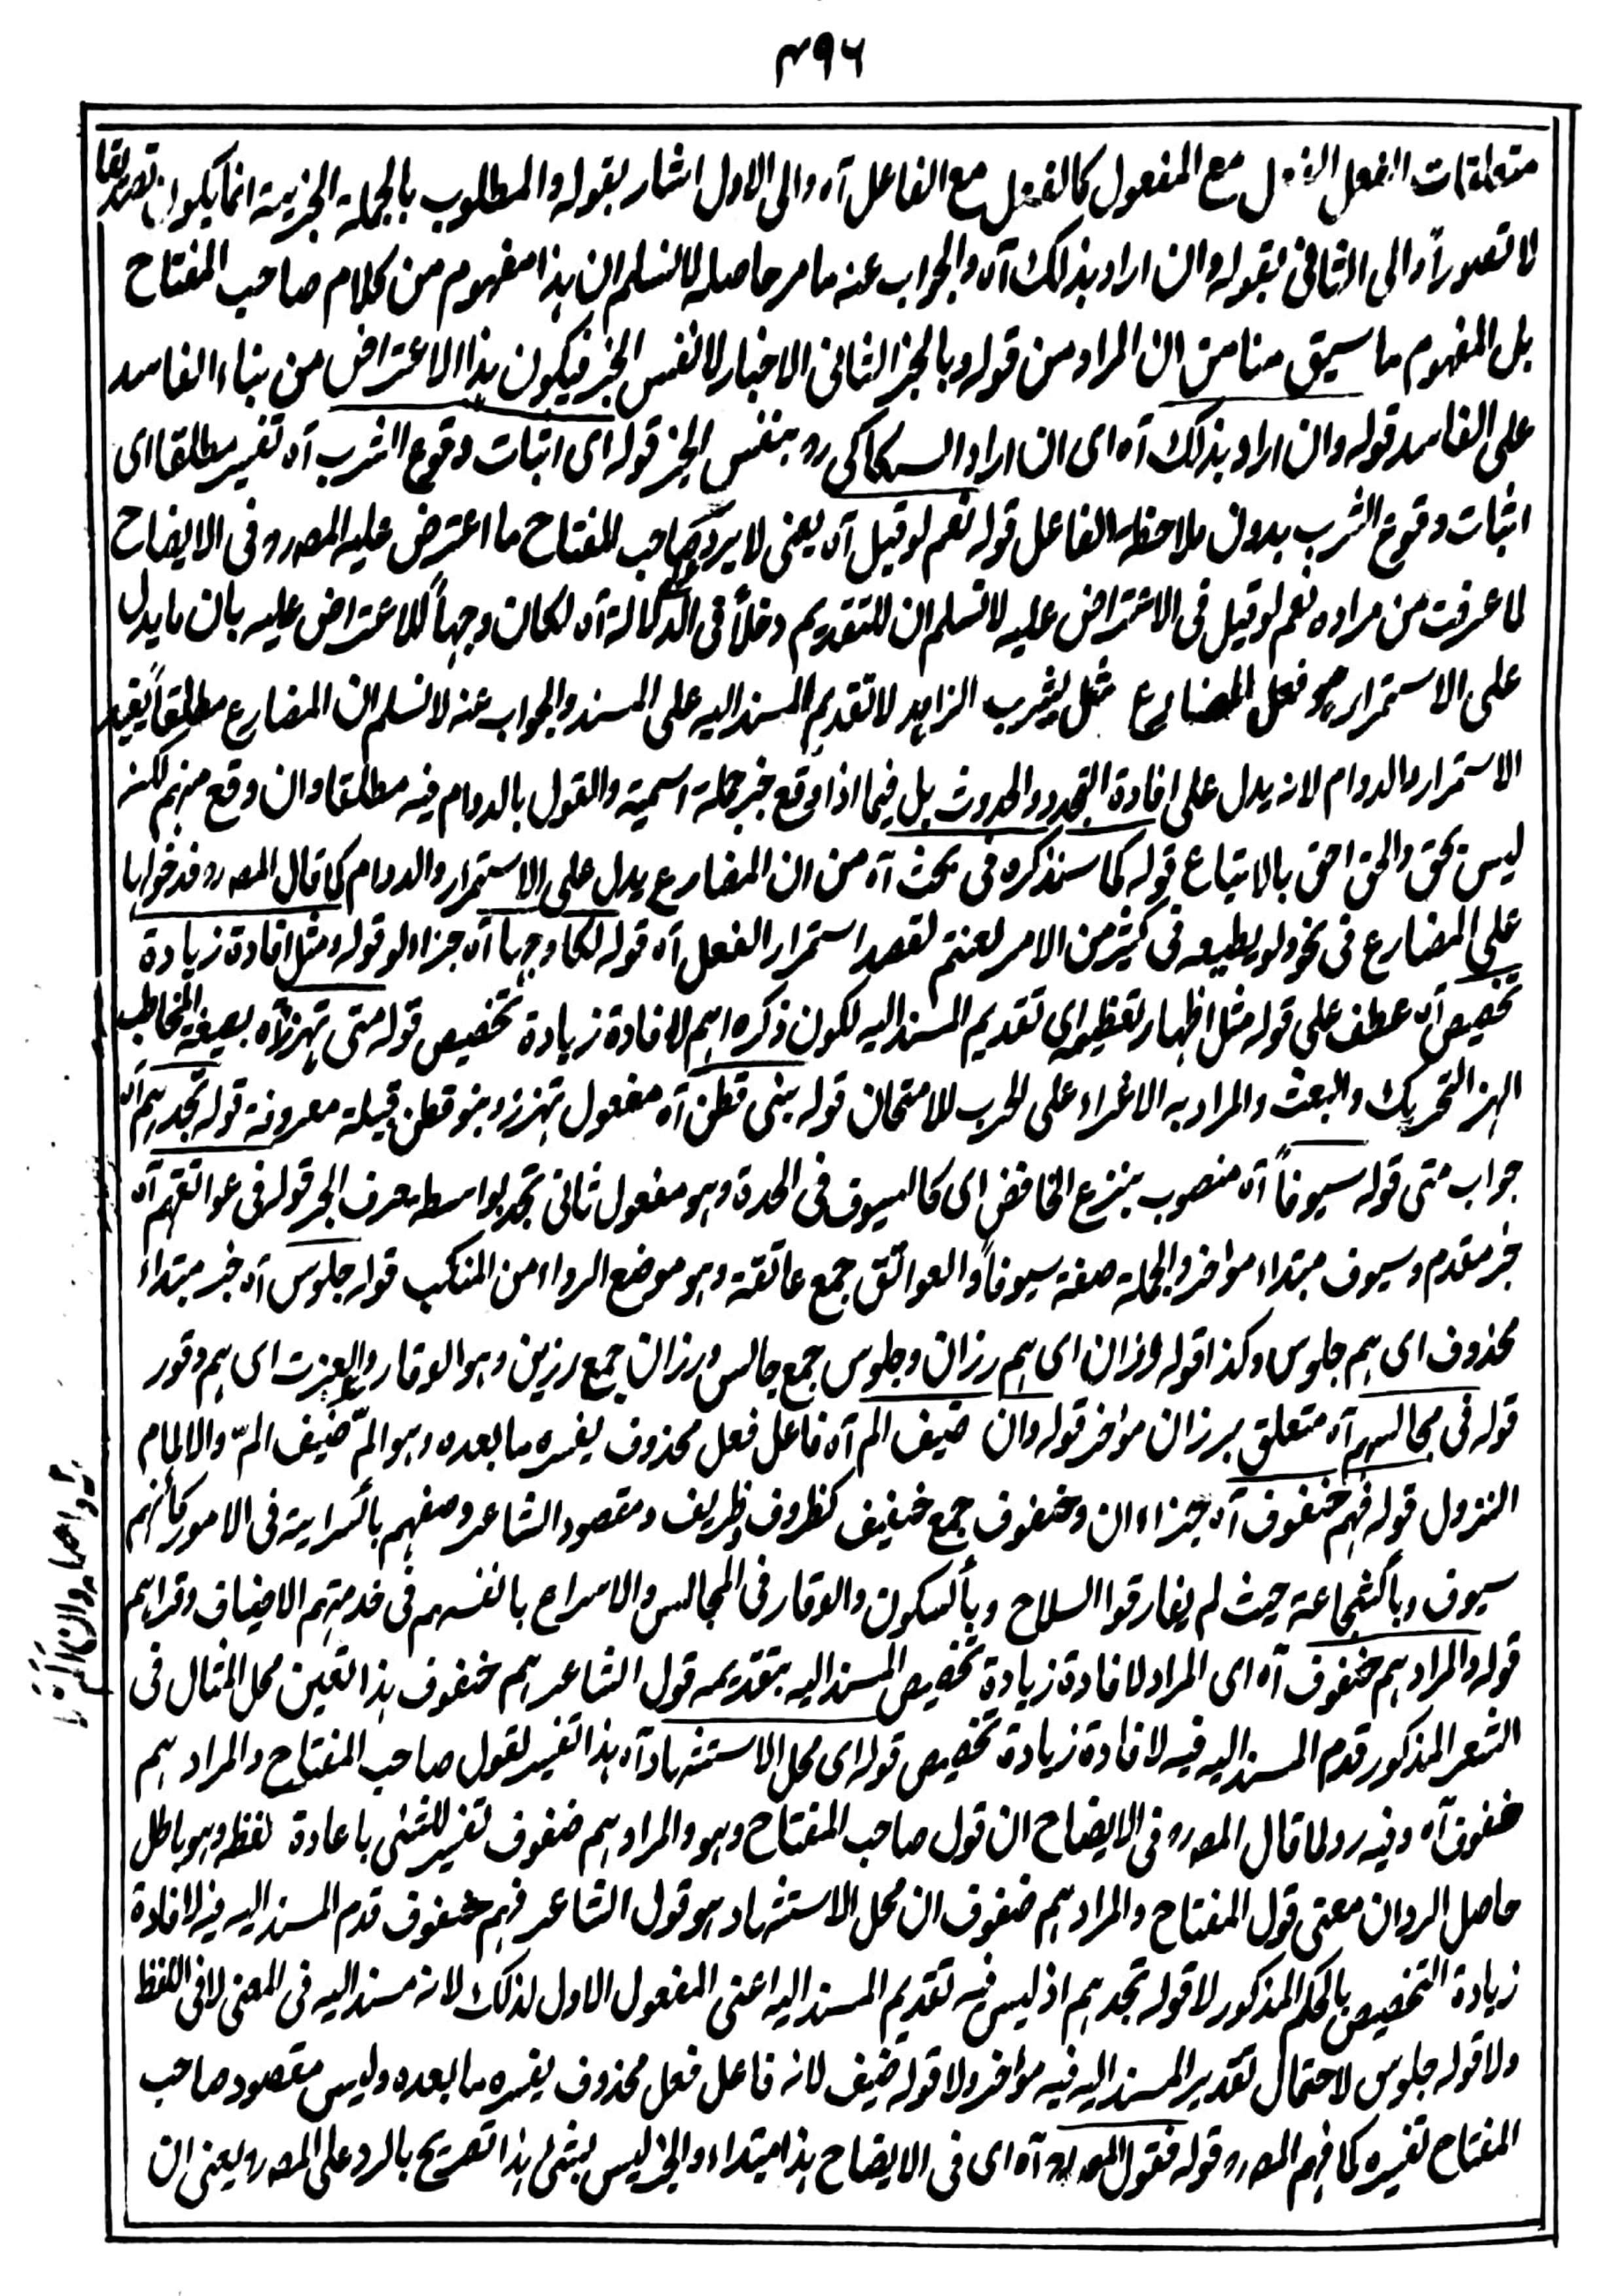 ٤٩٦
متعلقات الفعل الفعل مع المفعول كالفعل مع الفاعل آه والى الاول اشار بقوله والمطلوب بالجملة الخبرية انما يكون تصديقا
لا تصوراً والى الثانى بقوله وان اراد بذلك آه والجواب عنه ما مر حاصله لا نسلم ان هذا مفهوم من كلام صاحب المفتاح
بل المفهوم ما سبق منا من ان المراد من قوله وبالخبر الثانى الاخبار لا نفس الخبر فيكون هذا الاعتراض من بناء الفاسد
على الفاسد قوله وان اراد بذلك آه اى ان اراد السكاكى رو بنفس الخبر قوله اى اثبات وقوع الشرب آه تفسير مطلقا اى
اثبات وقوع الشرب بدون ملاحظة الفاعل قوله نعم لو قيل آه يعنى لا يرد على صاحب المفتاح ما اعترض عليه المصه رو فى الايضاح
لما عرفت من مراده نعم لو قيل فى الاعتراض عليه لا نسلم ان للتقديم دخلاً فى الدلالة آه لكان وجهاً للاعتراض عليه بان ما يدل
على الاستمرار هو فعل المضارع مثل يشرب الزاهد لا تقديم المسند اليه على المسند والجواب عنه لا نسلم ان المضارع مطلقاً يفيد
الاستمرار والدوام لانه يدل على افادة التجدد والحدوث بل فيما اذا وقع خبر جملة اسمية والقول بالدوام فيه مطلقا وان وقع منهم لكنه
ليس بحق والحق احق بالاتباع قوله كما سنذكره فى بحث آه من ان المضارع يدل على الاستمرار والدوام كما قال المصه رو فدخولها
على المضارع فى نحو ولو يطيعه فى كثير من الامر لعنتم لقصد استمرار الفعل آه قوله لكا وجها آه جزاء لو قوله ومثل افادة زيادة
تخصيص آه عطف على قوله مثل اظهار تعظيمه اى تقديم المسند اليه لكون ذكره اهم لافادة زيادة تخصيص قوله متى تهزز آه بصيغة المخاطب
الهز التحريك والبعث والمراد به الاغراء على الحرب للامتحان قوله بنى قطن آه مفعول تهزز وبنو قطن قبيلة معروفة قوله تجدهم آه
جواب متى قوله سيوفاً آه منصوب بنزع الخافض اى كالسيوف فى الحدة وهو مفعول ثانى تجد بواسطة حرف الجر قوله فى عواتقهم آه
خبر مقدم وسيوف مبتداء مؤخر والجملة صفة سيوفاً والعواتق جمع عاتقة وهو موضع الرداء من المنكب قوله جلوس آه خبر مبتداء
محذوف اى هم جلوس وكذا قوله ورزان اى هم رزان وجلوس جمع جالس ورزان جمع رزين وهو الوقار والعزت اى هم وقور
قوله فى مجالسهم آه متعلق برزان مؤخر قوله وان ضيف الم آه فاعل فعل محذوف يفسره ما بعده وهو المّ ضيف المّ والالمام
النزول قوله فهم خفوف آه جزاء ان وخفوف جمع خفيف كظروف وظريف ومقصود الشاعر وصفهم بالسراية فى الامور كانهم
سيوف وبالشجاعة حيث لم يفارقوا السلاح وبالسكون والوقار فى المجالس والاسراع بانفسهم فى خدمتهم الاضياف وقراهم
قوله والمراد هم خفوف آه اى المراد لافادة زيادة تخصيص المسند اليه بتقديمه قول الشاعر هم خفوف هذا تعين محل المثال فى
الشعر المذكور قدم المسند اليه فيه لافادة زيادة تخصيص قوله اى محل الاستشهاد آه هذا تفسير لقول صاحب المفتاح والمراد هم
خفوف آه وفيه رد لما قال المصه رو فى الايضاح ان قول صاحب المفتاح وهو والمراد هم خفوف تفسير للشئى باعادة لفظه وهو باطل
حاصل الرد ان معنى قول المفتاح والمراد هم خفوف ان محل الاستشهاد هو قول الشاعر فهم خفوف قدم المسند اليه فيه لافادة
زيادة التخصيص بالحكم المذكور لا قوله تجدهم اذ ليس فيه تقديم المسند اليه اعنى المفعول الاول لذلك لانه مسند اليه فى المعنى لا فى اللفظ
ولا قوله جلوس لاحتمال تقدير المسند اليه فيه مؤخر ولا قوله ضيف لانه فاعل فعل محذوف يفسره ما بعده وليس مقصود صاحب
المفتاح تفسيره كما فهم المصه رو قوله فقول المصه رو آه اى فى الايضاح هذا مبتداء والخبر ليس بشئى هذا تصريح بالرد على المصه رو يعنى ان